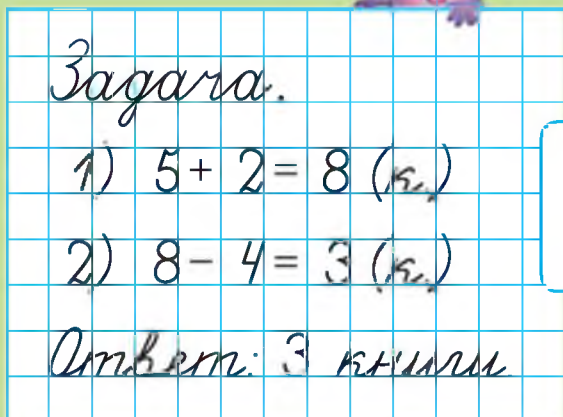 Задача.
1) 5 + 2 = 8 (к.)
2) 8 - 4 = 3 (к.)
Ответ: 3 книги